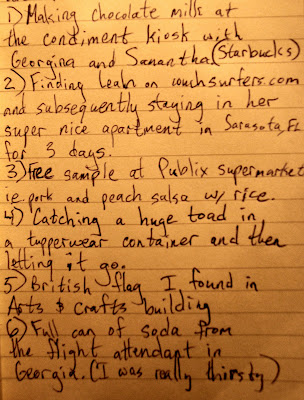 1) Making chocolate milks at
the condiment kiosk with
Georgina and Samantha (Starbucks)
2) Finding Leah on couchsurfers.com
and subsequently staying in her
super nice apartment in Sarasota, FL
for 3 days.
3) Free sample at Publix supermarket
ie. pork and peach salsa w/ rice.
4) Catching a huge toad in
a tupperwear container and then
letting it go.
5) British flag I found in
Arts & Crafts building
6) Full can of soda from
the flight attendant in
Georgia. (I was really thirsty)